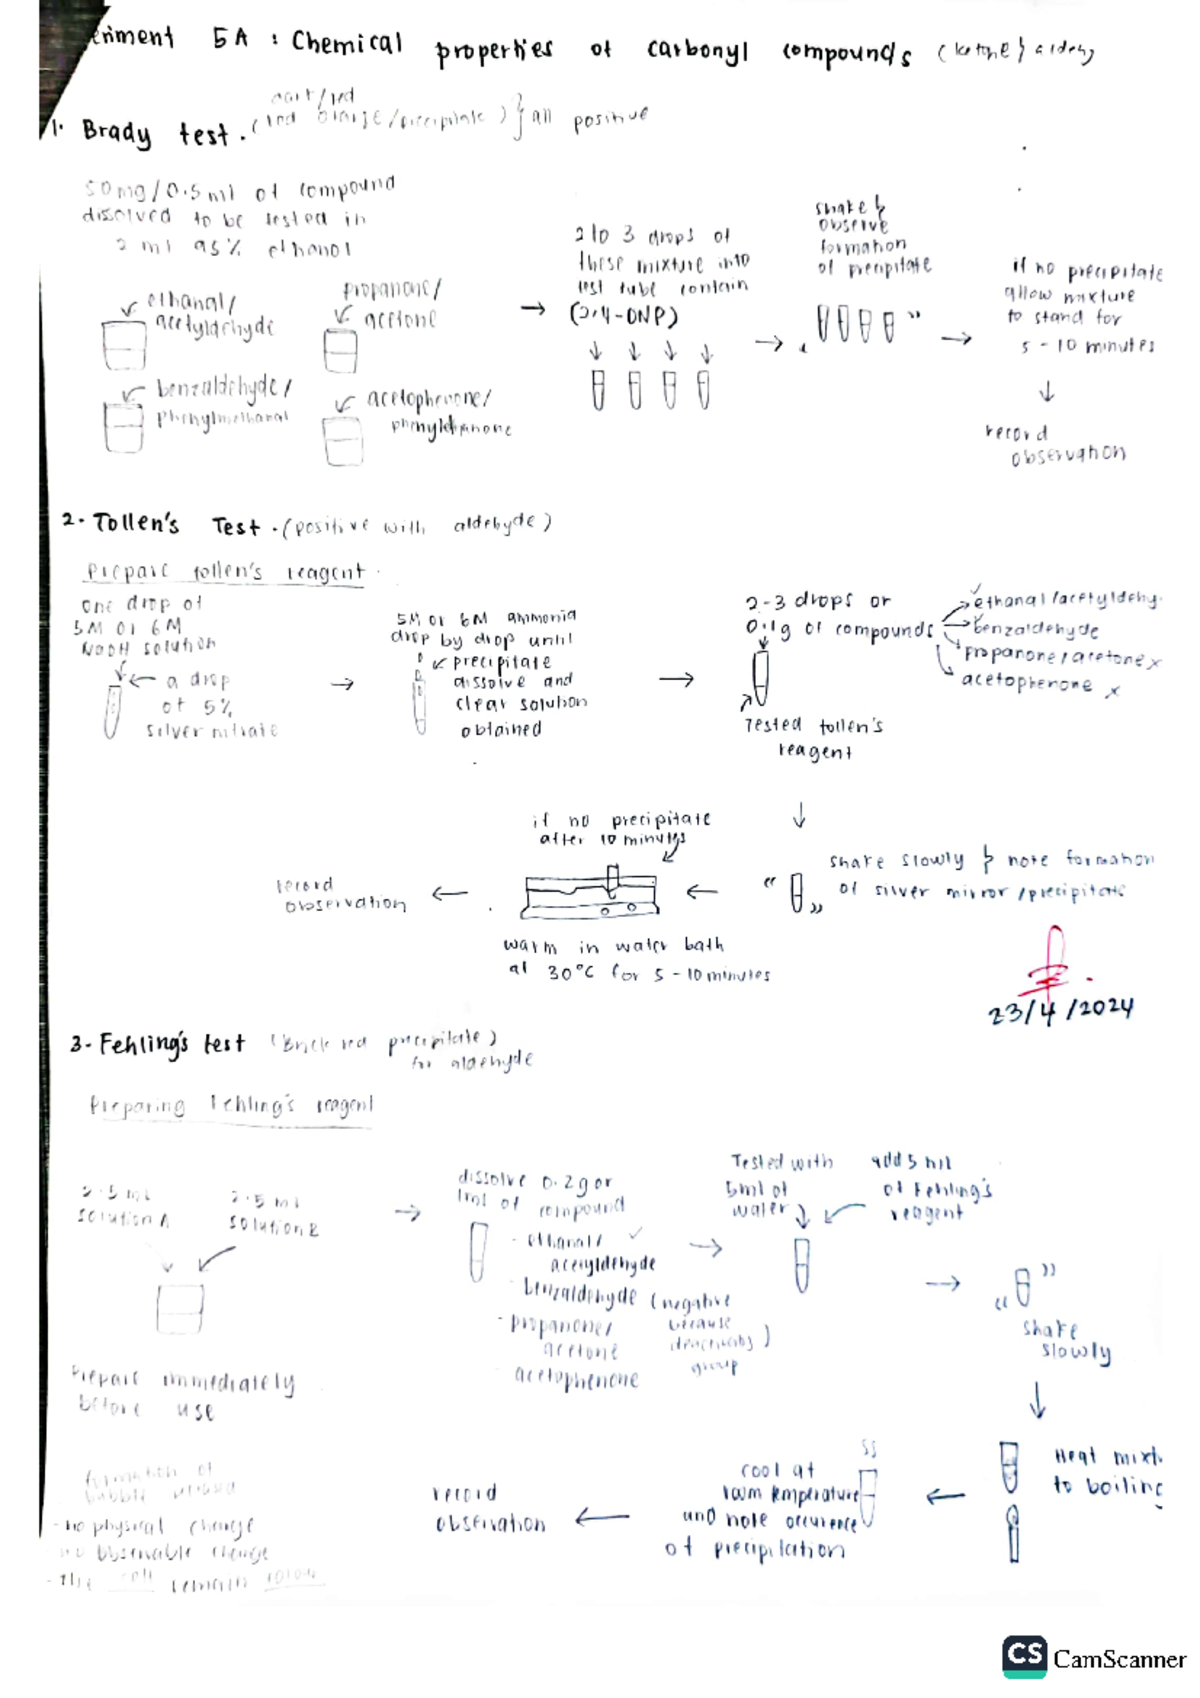 eriment 5A : Chemical properties of carbonyl compounds (ketone & aldehy
1. Brady test. (and orange/precipitate) } all positive
50mg/0.5ml of compound
disolved to be tested in
2 ml 95% ethanol
ethanal/
acetyldehyde
propanone/
acetone
benzaldehyde/
phenylmethanal
acetophenone/
phenylethanone
→
2 to 3 drops of
these mixture into
test tube contain
(2,4-DNP)
→
shake &
observe
formation
of precipitate
→
if no precipitate
allow mixture
to stand for
5-10 minutes
↓
record
observation
2. Tollen's Test. (positive with aldehyde)
Prepare tollen's reagent.
one drop of
5M or 6M
NaOH solution
a drop
of 5%
silver nitrate
→
5M or 6M ammonia
drop by drop until
precipitate
dissolve and
clear solution
obtained
→
2-3 drops or
0.1g of compounds
ethanal/acetyldehy.
benzaldehyde
propanone/acetone x
acetophenone x
Tested tollen's
reagent
↓
shake slowly & note formation
of silver mirror/precipitate
←
if no precipitate
after 10 minutes
warm in water bath
at 30°C for 5-10 minutes
←
record
observation
23/4/2024
3. Fehling's test (Brick red precipitate)
for aldehyde
Preparing Fehling's reagent
2.5 ml
solution A
2.5 ml
solution B
Prepare immediately
before use
→
dissolve 0.2g or
1ml of compound
- ethanal/ ✓
acetyldehyde
- benzaldehyde (negative
because
group)
- propanone/
acetone
- acetophenone
→
Tested with
5ml of
water
add 5 ml
of Fehling's
reagent
→
shake
slowly
↓
Heat mixt
to boiling
←
cool at
room temperature
and note occurence
of precipitation
←
record
observation
formation of
bubble
- no physical change
no observable change
- the remain
CS CamScanner